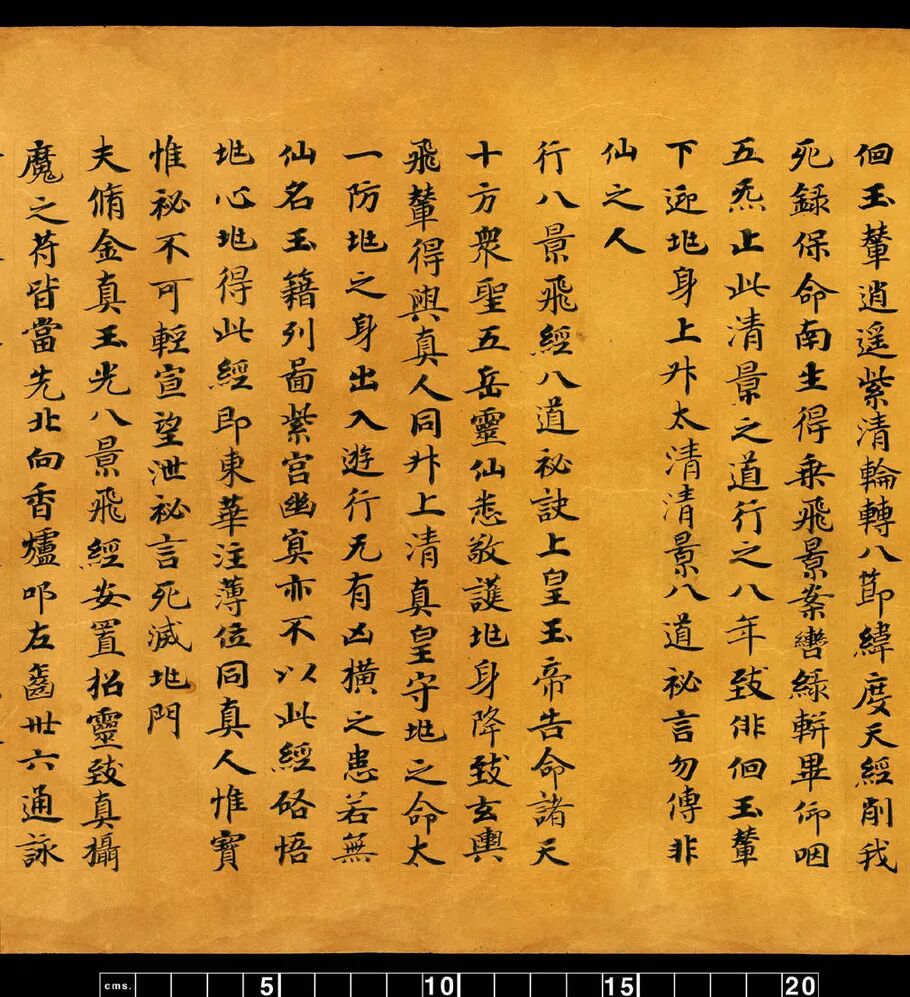 佪玉輦逍遥紫清輪轉八節緯度天經削我
死録保命南生得乗飛景案轡緑軿畢仰咽
五炁止此清景之道行之八年致俳佪玉輦
下迎兆身上升太清清景八道祕言勿傳非
仙之人
行八景飛經八道祕訣上皇玉帝告命諸天
十方衆聖五岳靈仙悉敬護兆身降致玄輿
飛輦得與真人同升上清真皇守兆之命太
一防兆之身出入遊行无有凶橫之患若無
仙名玉籍列啚紫宫幽冥亦不以此經啓悟
兆心兆得此經即東華注薄位同真人惟寳
惟祕不可輕宣望泄祕言死滅兆門
夫脩金真玉光八景飛經安置招靈致真攝
魔之苻皆當先北向香爐叩左齒卅六通詠
cms. 5 10 15 20